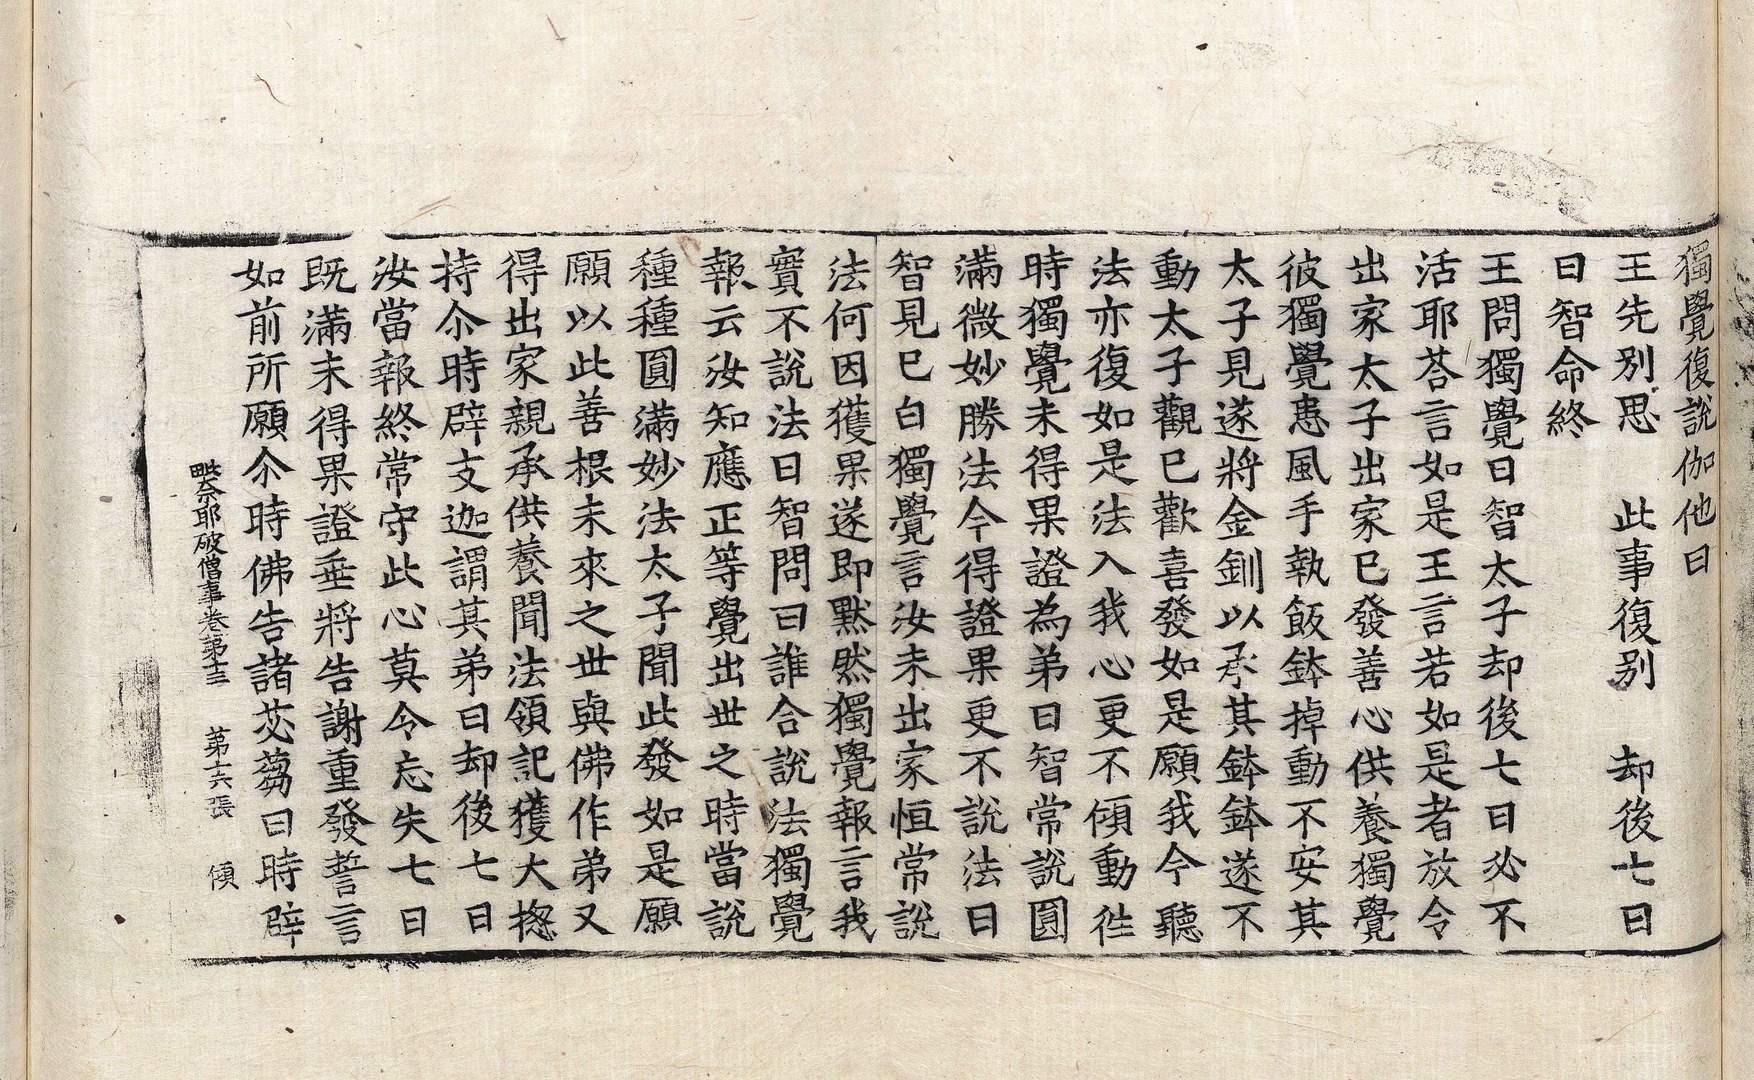 獨覺復說伽他曰
王先別思　此事復別　却後七日
日智命終
王問獨覺曰智太子却後七日必不
活耶荅言如是王言若如是者放令
出家太子出家已發善心供養獨覺
彼獨覺患風手執飯鉢掉動不安其
太子見遂將金釧以承其鉢鉢遂不
動太子觀已歡喜發如是願我今聽
法亦復如是法入我心更不傾動徃
時獨覺未得果證為弟曰智常說圓
滿微妙勝法今得證果更不說法日
智見已白獨覺言汝未出家恒常說
法何因獲果遂即默然獨覺報言我
實不說法日智問曰誰合說法獨覺
報云汝知應正等覺出世之時當說
種種圓滿妙法太子聞此發如是願
願以此善根未來之世與佛作弟又
得出家親承供養聞法領記獲大揔
持尒時辟支迦謂其弟曰却後七日
汝當報終常守此心莫令忘失七日
既滿未得果證垂將告謝重發誓言
如前所願尒時佛告諸苾蒭曰時辟
毗奈耶破僧事卷第十三　第十六張　傾